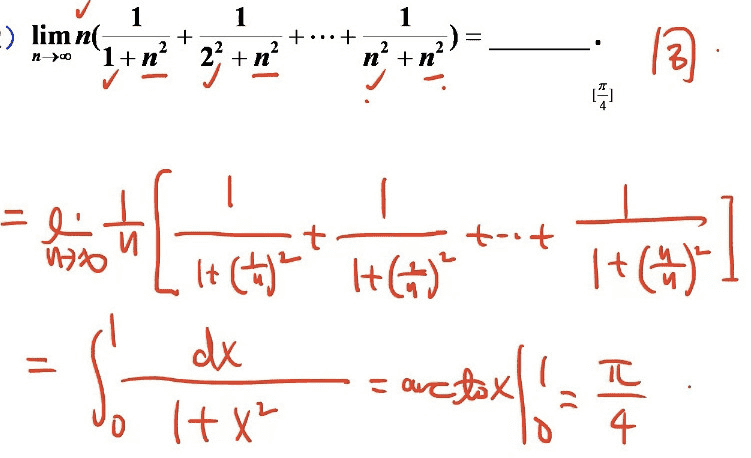 ) lim n→∞ n(1/(1+n²) + 1/(2²+n²) + ⋯ + 1/(n²+n²)) = ______.
[π/4]
= lim n→∞ 1/n [1/(1+(1/n)²) + 1/(1+(2/n)²) + ⋯ + 1/(1+(n/n)²)]
= ∫₀¹ dx/(1+x²) = arctan x |₀¹ = π/4.